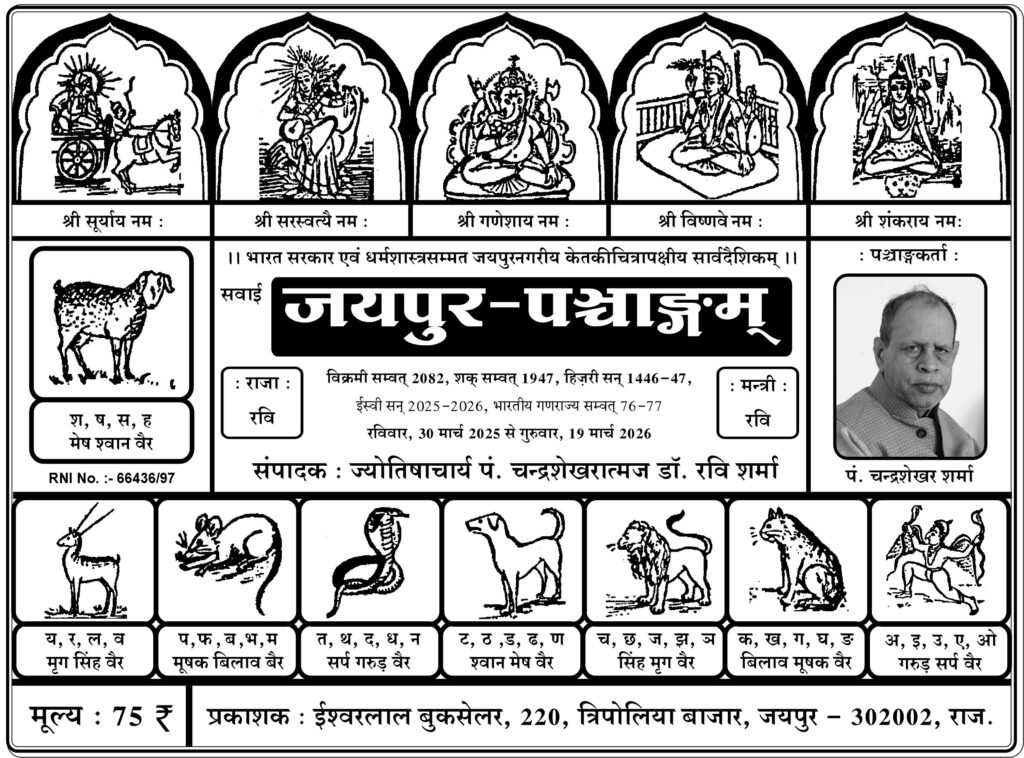 श्री सूर्याय नम :
श्री सरस्वत्यै नम :
श्री गणेशाय नम :
श्री विष्णवे नम :
श्री शंकराय नमः
।। भारत सरकार एवं धर्मशास्त्रसम्मत जयपुरनगरीय केतकीचित्रापक्षीय सार्वदैशिकम् ।।
सवाई
जयपुर-पञ्चाङ्गम्
: राजा :
रवि
विक्रमी सम्वत् 2082, शक् सम्वत् 1947, हिज़री सन् 1446-47,
ईस्वी सन् 2025-2026, भारतीय गणराज्य सम्वत् 76-77
रविवार, 30 मार्च 2025 से गुरुवार, 19 मार्च 2026
: मन्त्री :
रवि
संपादक : ज्योतिषाचार्य पं. चन्द्रशेखरात्मज डॉ. रवि शर्मा
श, ष, स, ह
मेष श्वान वैर
RNI No. :- 66436/97
: पञ्चाङ्गकर्ता :
पं. चन्द्रशेखर शर्मा
य, र, ल, व
मृग सिंह वैर
प, फ, ब, भ, म
मूषक बिलाव बैर
त, थ, द, ध, न
सर्प गरुड़ वैर
ट, ठ ,ड, ढ, ण
श्वान मेष वैर
च, छ, ज, झ, ञ
सिंह मृग वैर
क, ख, ग, घ, ङ
बिलाव मूषक वैर
अ, इ, उ, ए, ओ
गरुड़ सर्प वैर
मूल्य : 75 ₹
प्रकाशक : ईश्वरलाल बुकसेलर, 220, त्रिपोलिया बाजार, जयपुर – 302002, राज.